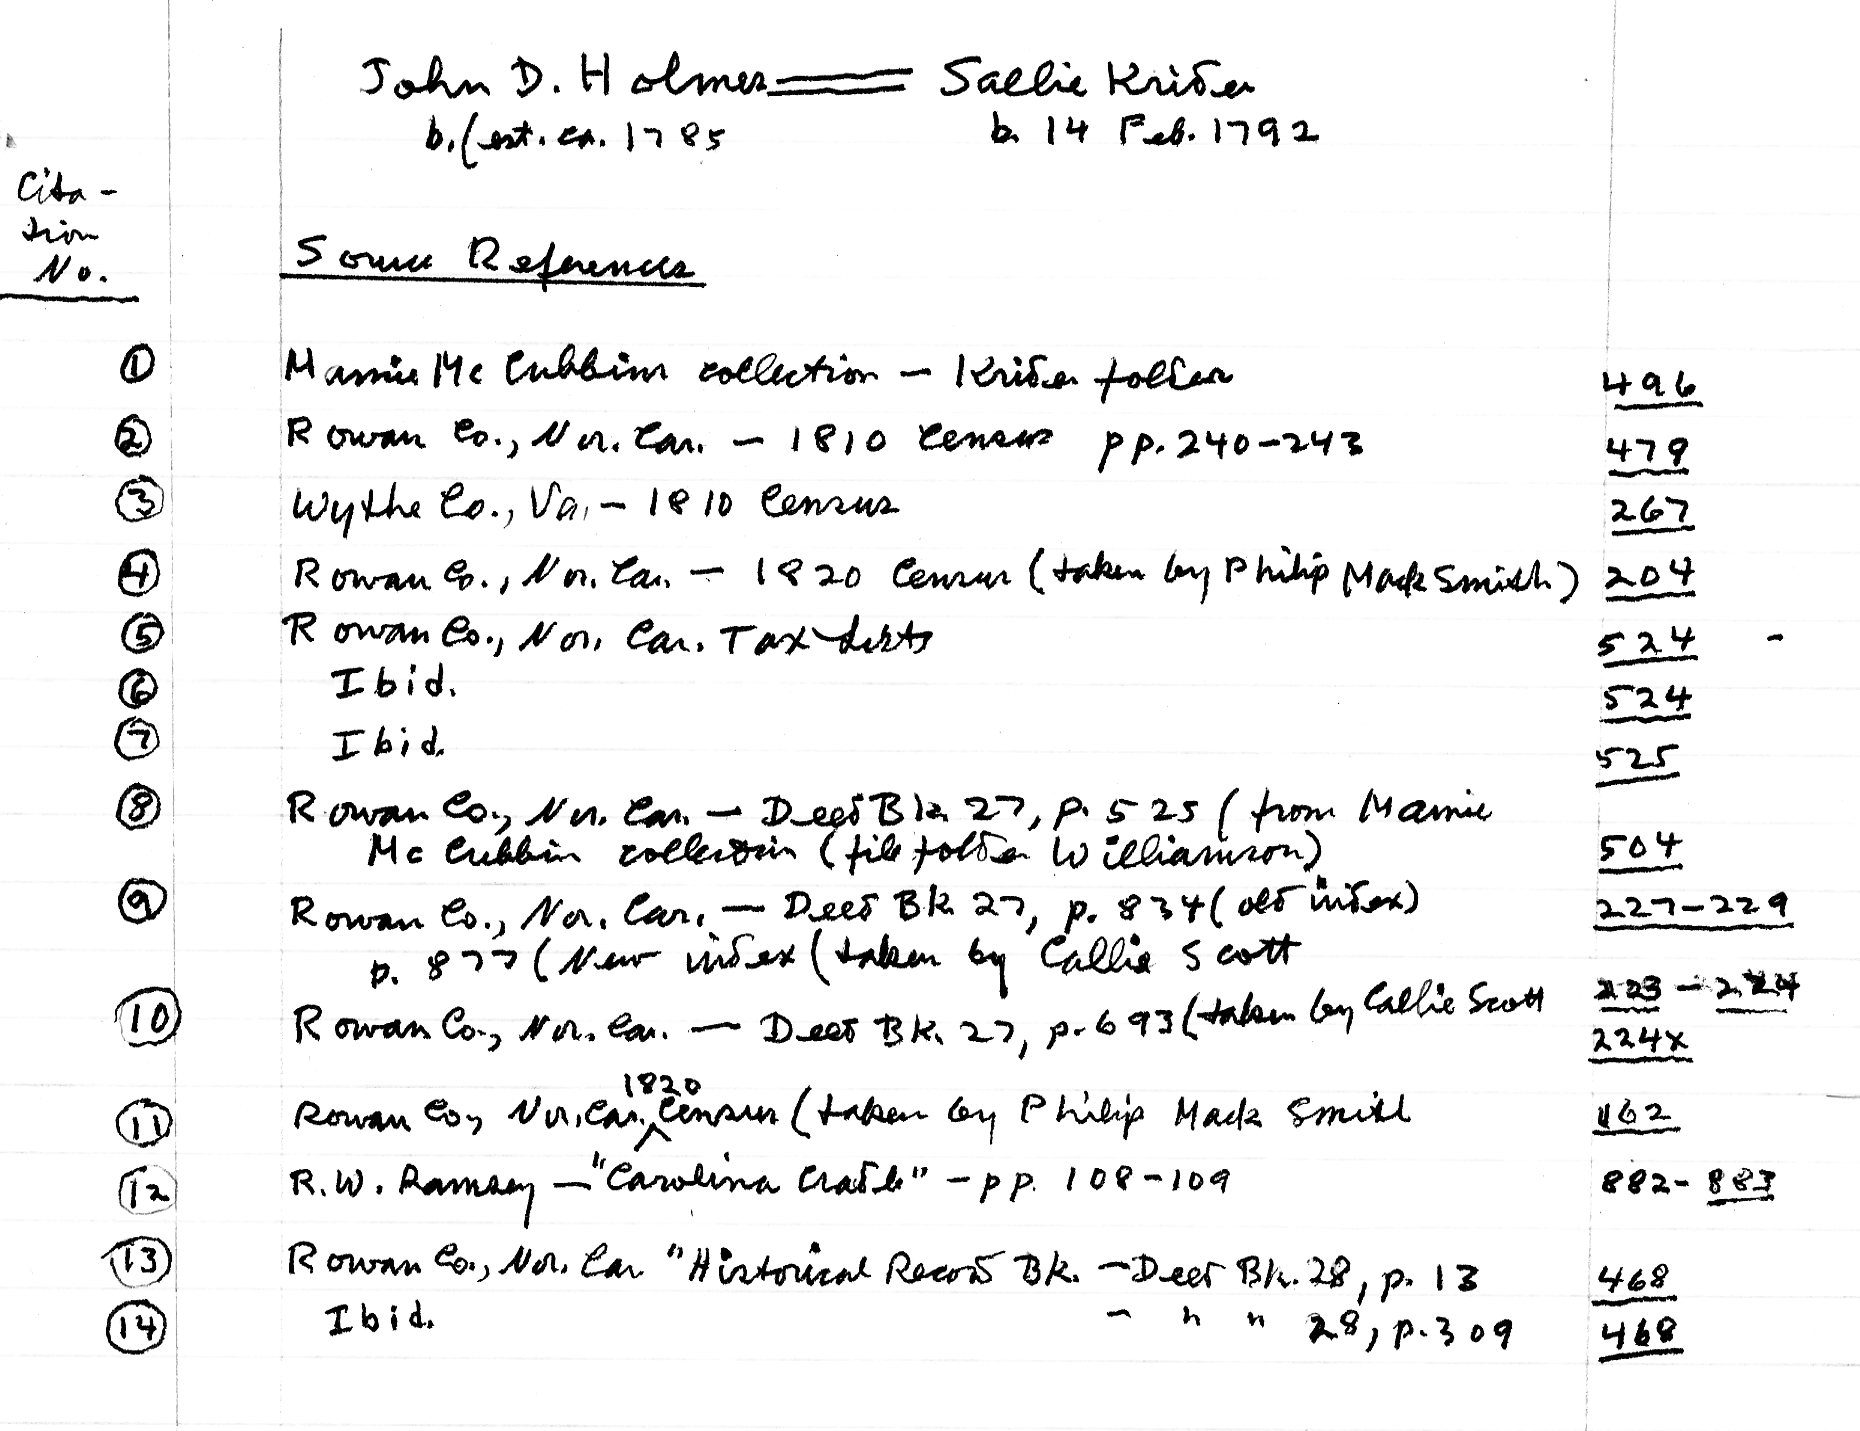 John D. Holmes == Sallie Krider
b. (est. ca. 1785 b. 14 Feb. 1792
Cita-
tion
No.
Source References
1 Mamie McCubbins collection - Krider folder 496
2 Rowan Co., Nor. Car. - 1810 Census pp. 240-243 479
3 Wythe Co., Va. - 1810 Census 267
4 Rowan Co., Nor. Car. - 1820 Census (taken by Philip Mack Smith) 204
5 Rowan Co., Nor. Car. Tax Lists 524 -
6 Ibid. 524
7 Ibid. 525
8 Rowan Co., Nor. Car. - Deed Bk. 27, p. 525 (from Mamie
McCubbin collection (file folder Williamson) 504
9 Rowan Co., Nor. Car. - Deed Bk. 27, p. 834 (old index) 227-229
p. 877 (New index (taken by Callie Scott
10 Rowan Co., Nor. Car. - Deed Bk. 27, p. 693 (taken by Callie Scott 223-224
224x
11 Rowan Co., Nor. Car. 1820 Census (taken by Philip Mack Smith 162
12 R.W. Ramsey - "Carolina Cradle" - pp. 108-109 882-883
13 Rowan Co., Nor. Car "Historical Record Bk. - Deed Bk. 28, p. 13 468
14 Ibid. - " " 28, p. 309 468